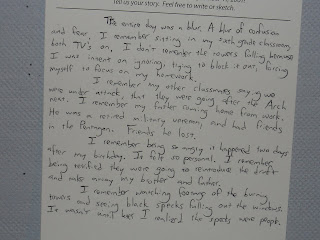 Tell us your story. Feel free to write or sketch.
The entire day was a blur. A blur of confusion
and fear. I remember sitting in my sixth grade classroom,
both TV's on. I don't remember the towers falling because
I was intent on ignoring, trying to block it out, forcing
myself to focus on my homework.
I remember my other classmates saying we
were under attack, that they were going after the Arch
next. I remember my father coming home from work.
He was a retired military and had friends
in the Pentagon. Friends he lost.
I remember being so angry it happened two days
after my birthday. It felt so personal. I remember
being terrified they were going to reintroduce the draft
and take away my brother and father.
I remember watching footage of the burning
towers and seeing black specks falling out the windows.
It wasn't until later I realized the specks were people.